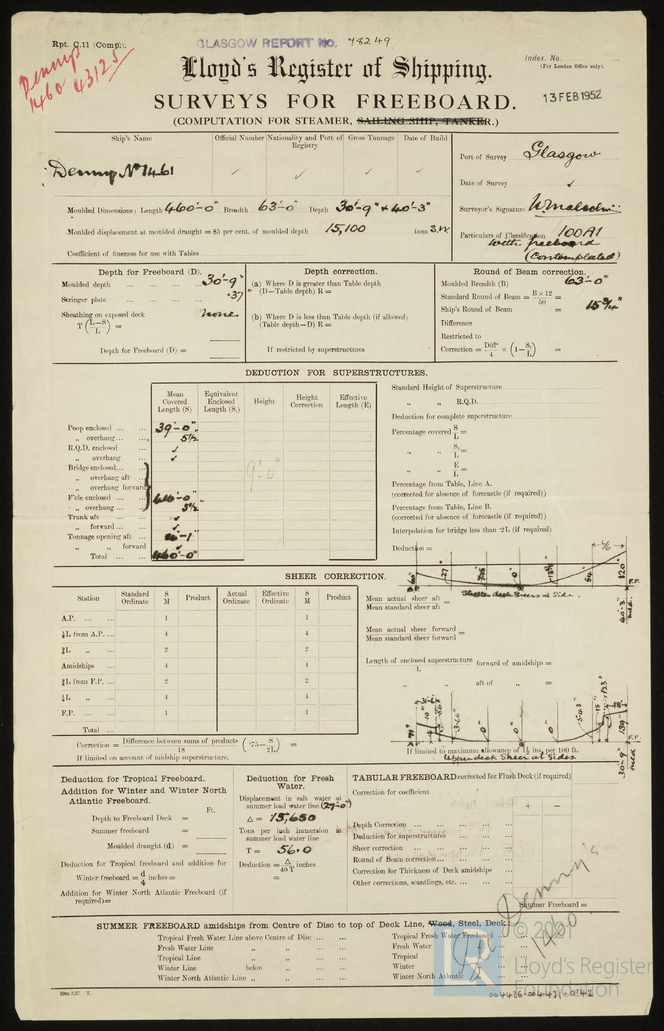 Rpt. C.11 (Comp.).
GLASGOW REPORT NO. 78249
Index. No.
(For London Office only).
Denny's
1460 43125
Lloyd's Register of Shipping.
SURVEYS FOR FREEBOARD.
13 FEB 1952
(COMPUTATION FOR STEAMER, SAILING SHIP, TANKER.)
Ship's Name
Official Number
Nationality and Port of Registry
Gross Tonnage
Date of Build
Denny No 1461
Port of Survey Glasgow
Date of Survey
Surveyor's Signature W. Malcolm
Particulars of Classification 100A1
with freeboard
(Contemplated)
Moulded Dimensions: Length 460'-0" Breadth 63'-0" Depth 30'-9" + 40'-3"
Moulded displacement at moulded draught = 85 per cent. of moulded depth 15,100 tons S.W.
Coefficient of fineness for use with Tables
Depth for Freeboard (D).
Moulded depth ... 30'-9"
Stringer plate ... .37"
Sheathing on exposed deck none
T (L-S/L) =
Depth for Freeboard (D) =
Depth correction.
(a) Where D is greater than Table depth
(D—Table depth) R =
(b) Where D is less than Table depth (if allowed)
(Table depth—D) R =
If restricted by superstructures
Round of Beam correction.
Moulded Breadth (B) 63'-0"
Standard Round of Beam = B×12/50 =
Ship's Round of Beam = 15¾"
Difference
Restricted to
Correction = Diffce/4 × (1−S₁/L) =
DEDUCTION FOR SUPERSTRUCTURES.
Mean Covered Length (S)
Equivalent Enclosed Length (S₁)
Height
Height Correction
Effective Length (E)
Poop enclosed ... 39'-0"
" overhang ... 5½
R.Q.D. enclosed
" overhang
Bridge enclosed...
" overhang aft
" overhang forward
9'-6"
F'cle enclosed ... 416'-0"
" overhang ... 3½
Trunk aft
" forward ...
Tonnage opening aft ...
" " forward
Total ... 460'-0"
Standard Height of Superstructure
" " R.Q.D.
Deduction for complete superstructure
Percentage covered S/L =
" " S₁/L =
" " E/L =
Percentage from Table, Line A.
(corrected for absence of forecastle (if required))
Percentage from Table, Line B.
(corrected for absence of forecastle (if required))
Interpolation for bridge less than ·2L (if required)
Deduction =
Shelter deck Sheers at Side.
120"
F.P.
40'-3" mld.
SHEER CORRECTION.
Station
Standard Ordinate
S M
Product
Actual Ordinate
Effective Ordinate
S M
Product
A.P. ... 1 1
⅙L from A.P. ... 4 4
⅓L " ... 2 2
Amidships ... 4 4
⅓L from F.P. ... 2 2
⅙L " ... 4 4
F.P. ... 1 1
Total ...
Correction = Difference between sums of products/18 (·75−S/2L) =
If limited on account of midship superstructure.
Mean actual sheer aft =
Mean standard sheer aft
Mean actual sheer forward =
Mean standard sheer forward
Length of enclosed superstructure forward of amidships =
L
" " aft of " =
139"
F.P.
30'-9" mld
If limited to maximum allowance of 1½ ins. per 100 ft.
Upper deck Sheer at Sides.
Deduction for Tropical Freeboard.
Addition for Winter and Winter North Atlantic Freeboard.
Ft.
Depth to Freeboard Deck =
Summer freeboard =
Moulded draught (d) =
Deduction for Tropical freeboard and addition for
Winter freeboard = d/4 inches =
Addition for Winter North Atlantic Freeboard (if required) =
Deduction for Fresh Water.
Displacement in salt water at summer load water line (27'-0")
Δ = 15,650
Tons per inch immersion at summer load water line
T = 56.0
Deduction = Δ/40T inches
=
TABULAR FREEBOARD corrected for Flush Deck (if required)
Correction for coefficient
+ −
Depth Correction ...
Deduction for superstructures ...
Sheer correction ...
Round of Beam correction...
Correction for Thickness of Deck amidships ...
Other corrections, scantlings, etc. ...
Summer Freeboard =
Denny's
1460
SUMMER FREEBOARD amidships from Centre of Disc to top of Deck Line, Wood, Steel, Deck:
Tropical Fresh Water Line above Centre of Disc ...
Fresh Water Line " " ...
Tropical Line " " ...
Winter Line below " ...
Winter North Atlantic Line " " ...
Tropical Fresh Water Freeboard ...
Fresh Water " ...
Tropical " ...
Winter " ...
Winter North Atlantic " ...
Lloyd's Register
Foundation
004426-004431-0142